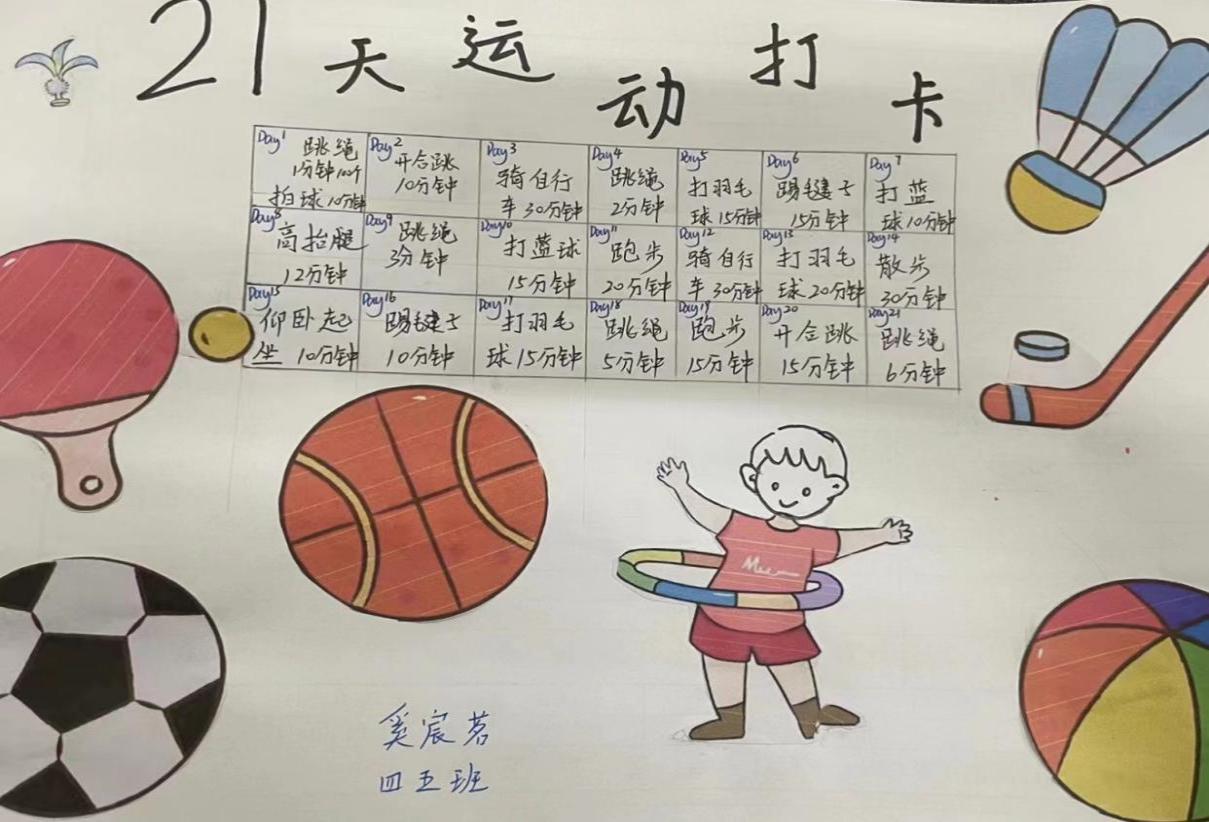 21天运动打卡
Day1 跳绳
1分钟100个
拍球10分钟
Day2
开合跳
10分钟
Day3
骑自行
车30分钟
Day4
跳绳
2分钟
Day5
打羽毛
球15分钟
Day6
踢毽子
15分钟
Day7
打蓝
球10分钟
Day8
高抬腿
12分钟
Day9 跳绳
3分钟
Day10
打蓝球
15分钟
Day11
跑步
20分钟
Day12
骑自行
车30分钟
Day13
打羽毛
球20分钟
Day14
散步
30分钟
Day15
仰卧起
坐10分钟
Day16
踢毽子
10分钟
Day17
打羽毛
球15分钟
Day18
跳绳
5分钟
Day19
跑步
15分钟
Day20
开合跳
15分钟
Day21
跳绳
6分钟
奚宸茗
四五班